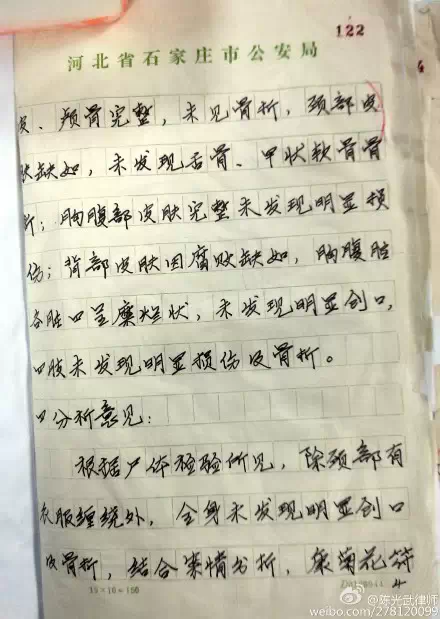 122
河北省石家庄市公安局
皮、颅骨完整，未见骨折，颈部皮
肤缺如，未发现舌骨、甲状软骨骨
折；胸腹部皮肤完整未发现明显损
伤；背部皮肤因腐败缺如，胸腹腔
各脏口呈糜烂状，未发现明显创口，
口肢未发现明显损伤及骨折。
口分析意见：
根据尸体检验所见，除颈部有
衣服缠绕外，全身未发现明显创口
及骨折，结合案情分析，康菊花符
15×10=150
4
@陈光武律师
weibo.com/278120099